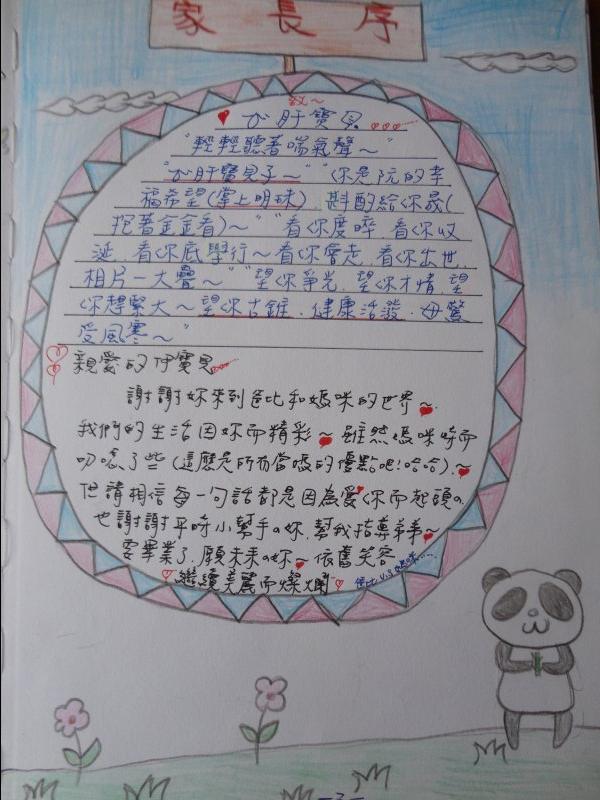 家長序
致~
心肝寶貝
"輕輕聽著喘氣聲~"
"心肝寶貝子~" "你是阮的幸
福希望(掌上明珠) 斟酌給你晟(
抱著金金看)~" "看你度晬 看你收
涎. 看你底學行~看你會走. 看你出世.
相片一大疊~" "望你爭光. 望你才情 望
你趕緊大~望你古錐. 健康活潑. 毋驚
受風寒~"
親愛的伊寶貝
謝謝妳來到爸比和媽咪的世界~
我們的生活因妳而精彩~ 雖然媽咪時而
叨唸了些(這應是所有當媽的優點吧!哈哈).~
但請相信每一句話都是因為愛你而起頭。
也謝謝平時小幫手の妳. 幫我指導弟弟~
要畢業了. 願未來の妳~依舊笑容
繼續美麗而燦爛
爸比 v.s 媽咪......
-3-